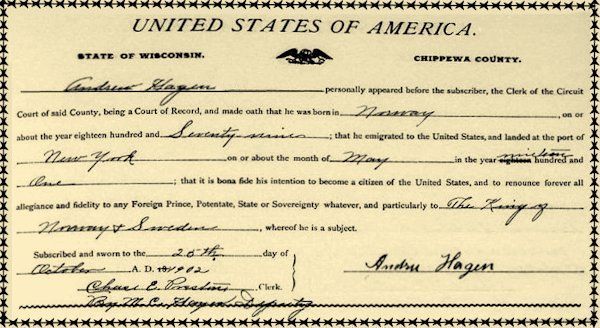 UNITED STATES OF AMERICA.
STATE OF WISCONSIN. CHIPPEWA COUNTY.
Andrew Hagen personally appeared before the subscriber, the Clerk of the Circuit
Court of said County, being a Court of Record, and made oath that he was born in Norway, on or
about the year eighteen hundred and Seventy nine; that he emigrated to the United States, and landed at the port of
New York on or about the month of May in the year eighteen nineteen hundred and
One; that it is bona fide his intention to become a citizen of the United States, and to renounce forever all
allegiance and fidelity to any Foreign Prince, Potentate, State or Sovereignty whatever, and particularly to The King of
Norway & Sweden, whereof he is a subject.
Subscribed and sworn to the 25th day of
October A. D. 1902
Andru Hagen
Chas E. Clerk.
By M. C. Hagen Deputy